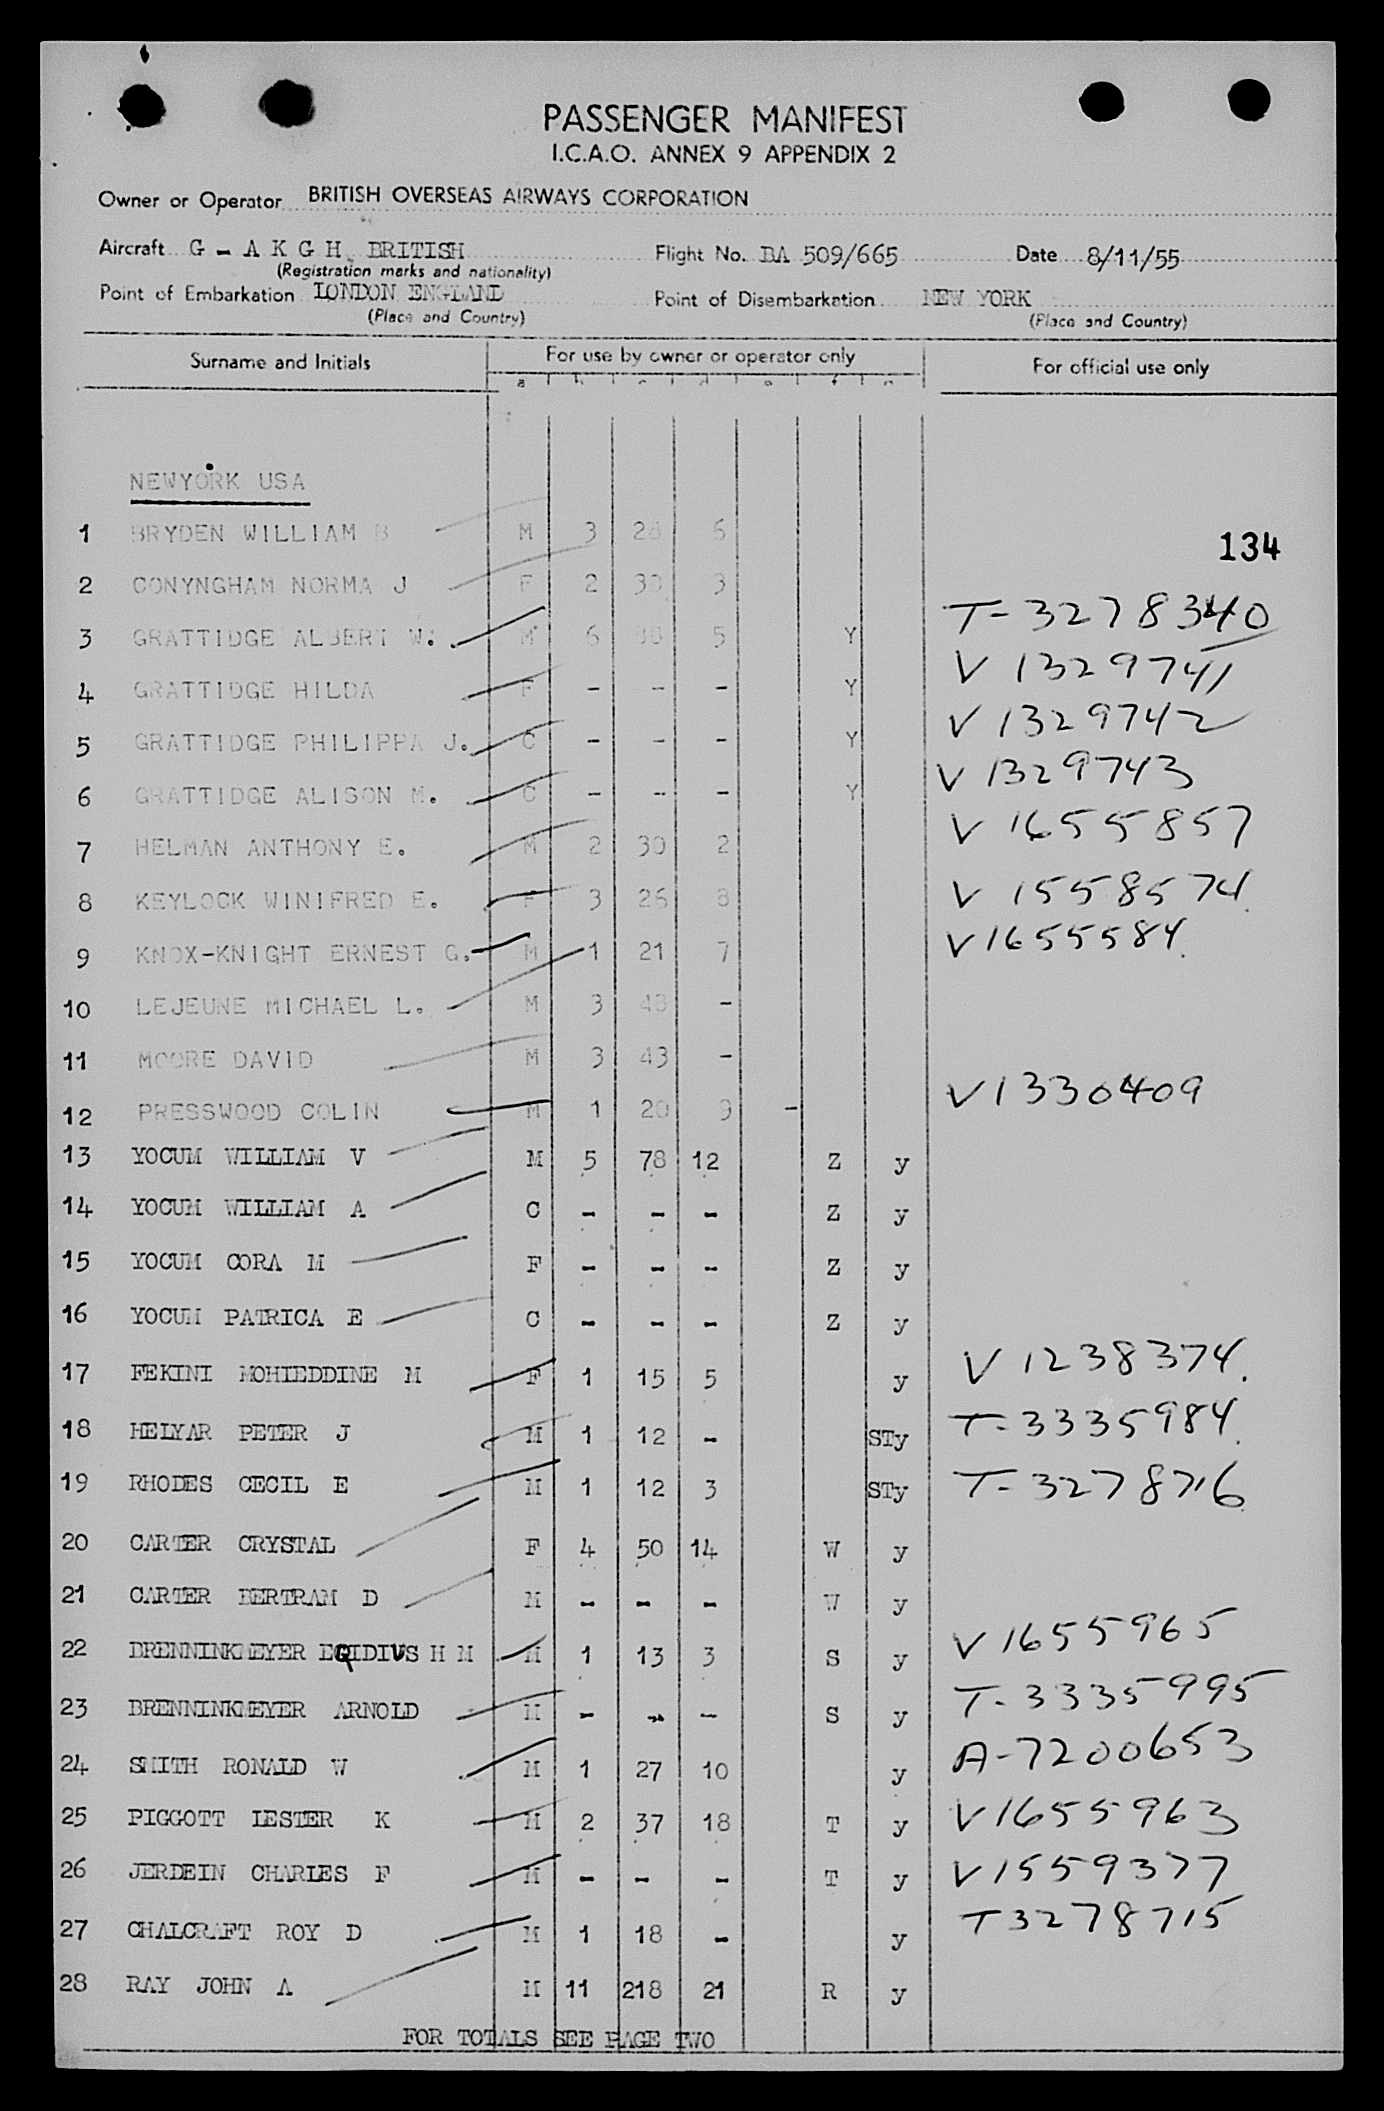 PASSENGER MANIFEST
I.C.A.O. ANNEX 9 APPENDIX 2
Owner or Operator BRITISH OVERSEAS AIRWAYS CORPORATION
Aircraft G - A K G H, BRITISH Flight No. BA 509/665 Date 8/11/55
(Registration marks and nationality)
Point of Embarkation LONDON ENGLAND Point of Disembarkation NEW YORK
(Place and Country) (Place and Country)
Surname and Initials For use by owner or operator only For official use only
a b c d e f g
NEWYORK USA
1 BRYDEN WILLIAM B M 3 6
134
2 CONYNGHAM NORMA J F 2 30 3
T-3278340
3 GRATTIDGE ALBERT W. M 6 5 Y
V 1329741
4 GRATTIDGE HILDA F - - - Y
V 1329742
5 GRATTIDGE PHILIPPA J. C - - - Y
V 1329743
6 GRATTIDGE ALISON M. C - - - Y
V 1655857
7 HELMAN ANTHONY E. M 2 30 2
8 KEYLOCK WINIFRED E. F 3 26 8 V 1558574
9 KNOX-KNIGHT ERNEST G. M 1 21 7 V1655584.
10 LEJEUNE MICHAEL L. M 3 43 -
11 MOORE DAVID M 3 43 -
12 PRESSWOOD COLIN M 1 20 9 - V1330409
13 YOCUM WILLIAM V M 5 78 12 Z y
14 YOCUM WILLIAM A C - - - Z y
15 YOCUM CORA M F - - - Z y
16 YOCUM PATRICA E C - - - Z y
17 FEKINI MOHIEDDINE M F 1 15 5 y V 1238374.
18 HELYAR PETER J M 1 12 - STy T-3335984.
19 RHODES CECIL E M 1 12 3 STy T-3278716
20 CARTER CRYSTAL F 4 50 14 W y
21 CARTER BERTRAM D M - - - W y
22 BRENNINKMEYER EGIDIUS H M M 1 13 3 S y V1655965
23 BRENNINKMEYER ARNOLD M - - - S y T-3335995
24 SMITH RONALD W M 1 27 10 y A-7200653
25 PIGGOTT LESTER K M 2 37 18 T y V1655963
26 JERDEIN CHARLES F M - - - T y V1559377
27 CHALCRAFT ROY D M 1 18 - y T3278715
28 RAY JOHN A M 11 218 21 R y
FOR TOTALS SEE PAGE TWO